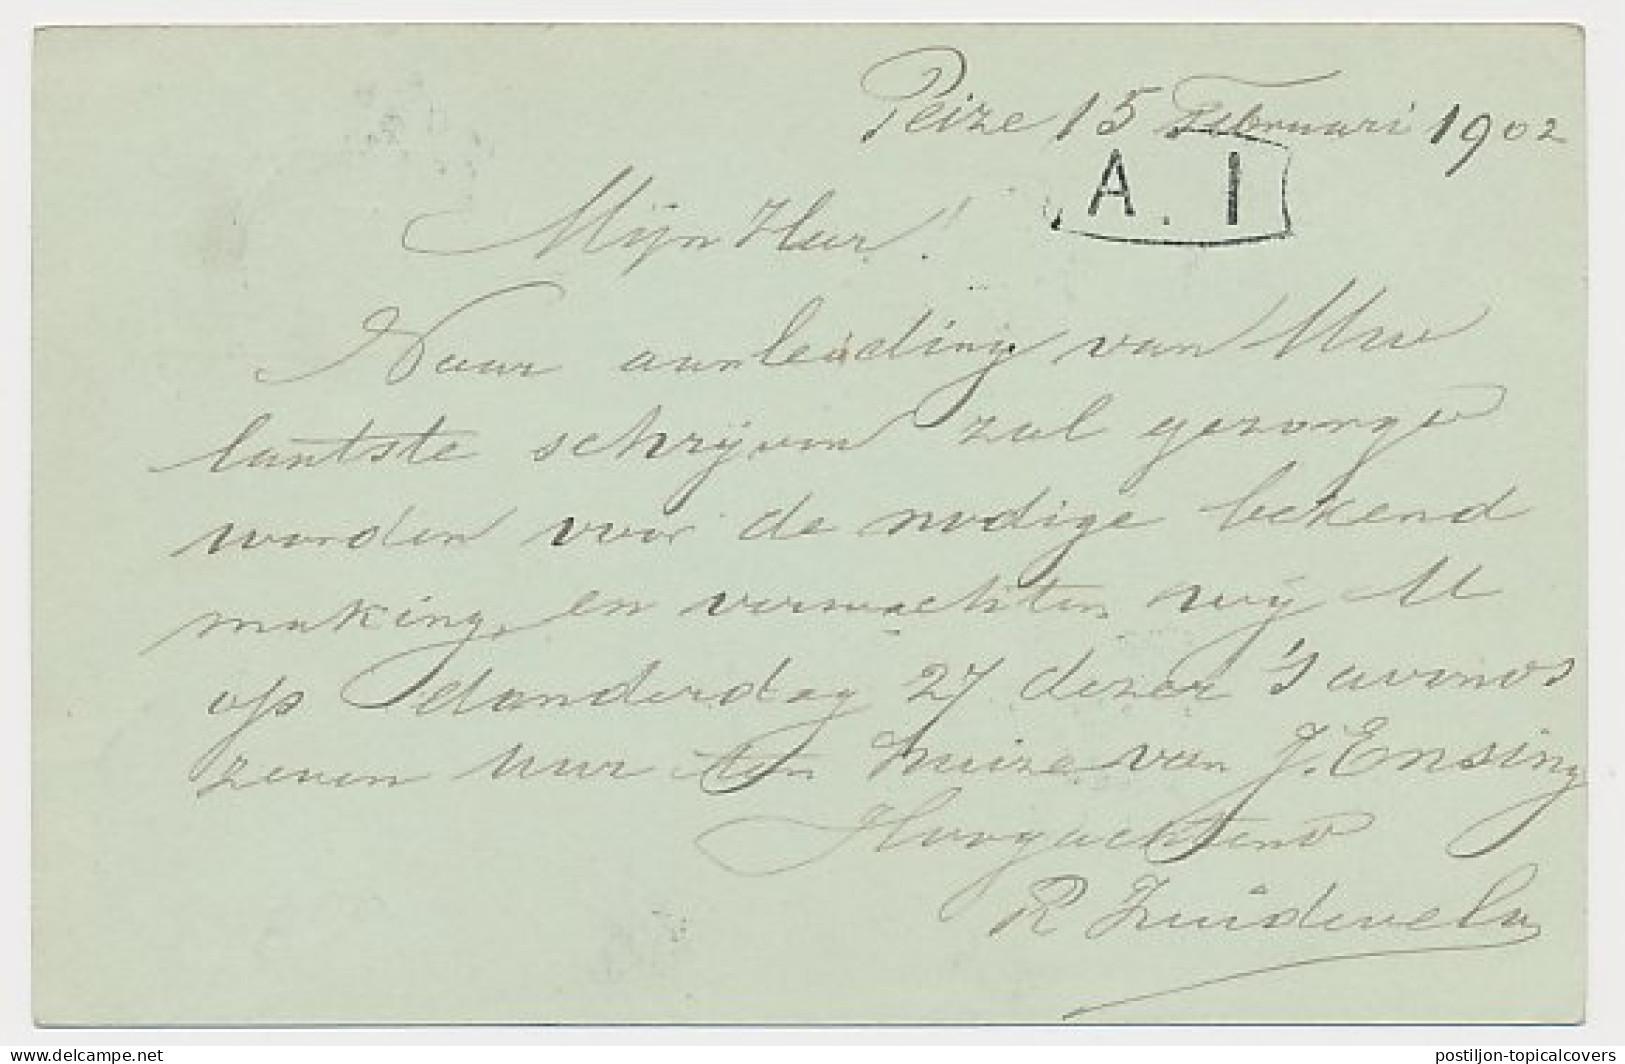 Peize 15 Februari 1902
A. I
Mijn Heer!
Naar aanleiding van Uw
laatste schrijven zal gezorgd
worden voor de nodige bekend
making, en verwachten wij U
op donderdag 27 dezer 's avonds
zeven uur ten huize van J. Ensing
Hoogachtend
R Zuidevelu
Delcampe.net
postiljon-topicalcovers